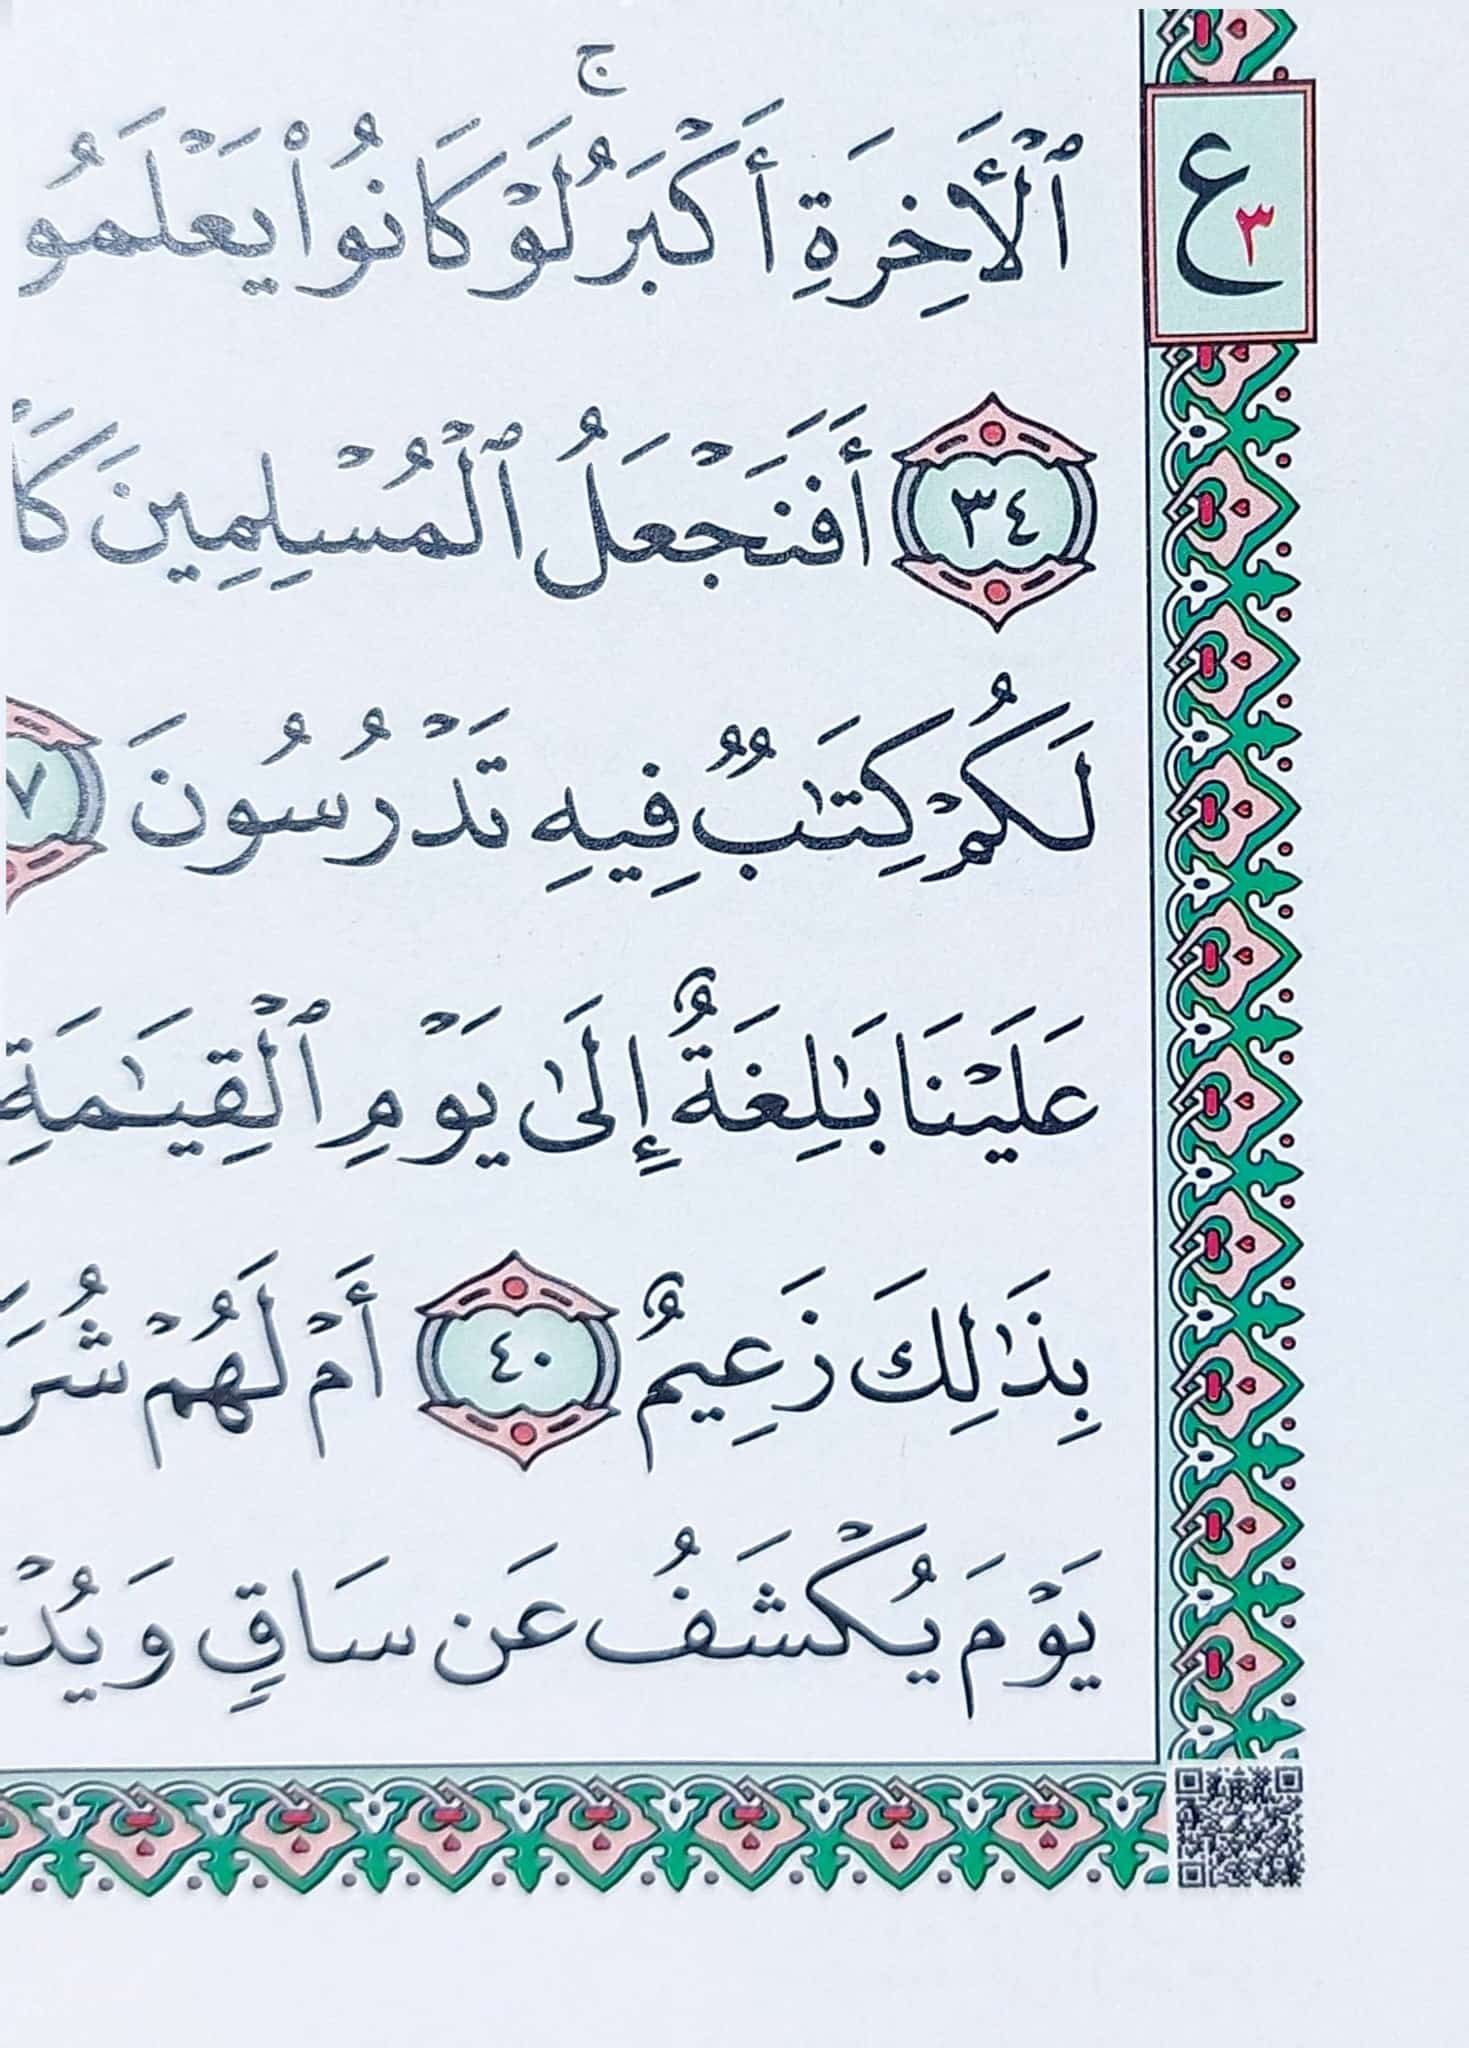 ج
ٱلْأَخِرَةِ أَكْبَرُ لَوْ كَانُوا۟ يَعْلَمُو
ع ٣
٣٤ أَفَنَجْعَلُ ٱلْمُسْلِمِينَ كَا
لَكُمْ كِتَٰبٌ فِيهِ تَدْرُسُونَ ٧
عَلَيْنَا بَٰلِغَةٌ إِلَىٰ يَوْمِ ٱلْقِيَٰمَةِ
بِذَٰلِكَ زَعِيمٌ ٤٠ أَمْ لَهُمْ شُرَ
يَوْمَ يُكْشَفُ عَن سَاقٍ وَيُدْ